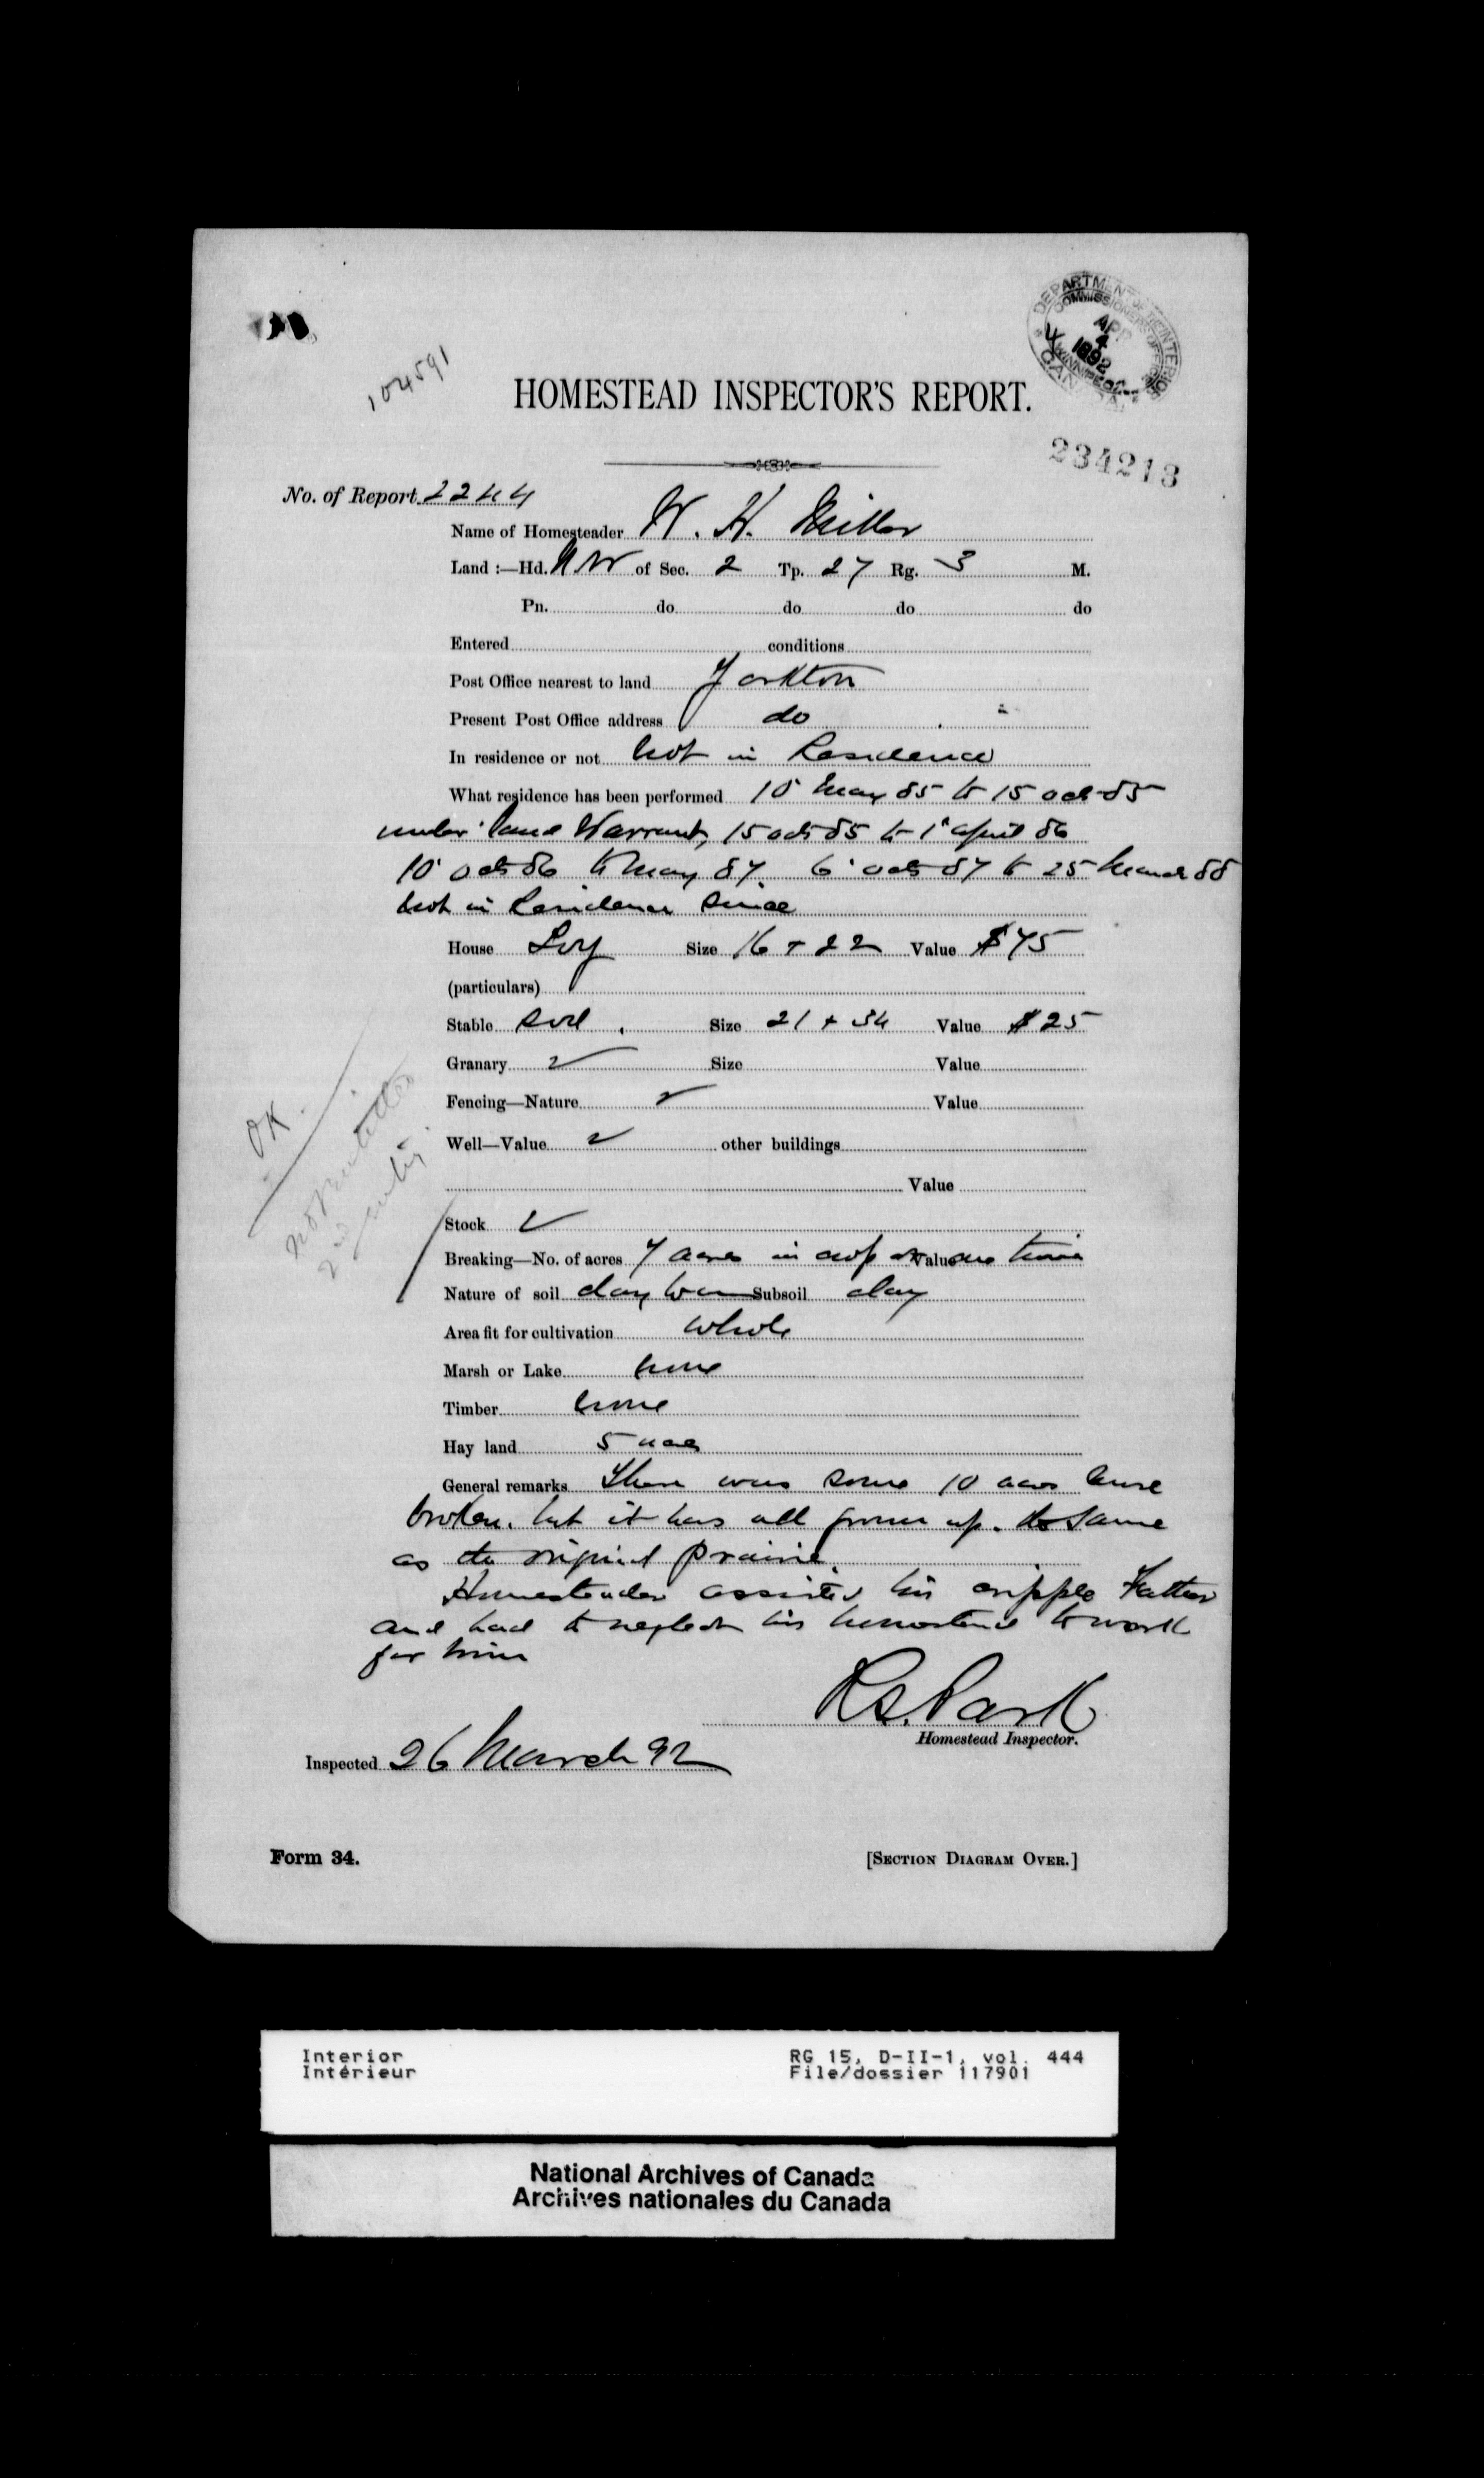 DEPARTMENT OF INTERIOR
COMMISSIONER'S OFFICE
APR
4
1892
WINNIPEG
CANADA
104591
HOMESTEAD INSPECTOR'S REPORT.
234213
No. of Report 2244
Name of Homesteader W. H. Miller
Land :—Hd. NW of Sec. 2 Tp. 27 Rg. 3 M.
Pn. do do do do
Entered conditions
Post Office nearest to land Yorkton
Present Post Office address do
In residence or not Not in Residence
What residence has been performed 10 May 85 to 15 oct 85
under land Warrant, 15 oct 85 to 1 april 86
10 oct 86 to May 87. 6 oct 87 to 25 March 88
Not in Residence Since
House Log Size 16 + 22 Value $75
(particulars)
Stable Sod Size 21 + 34 Value $25
Granary Size Value
Fencing—Nature Value
Well—Value other buildings
Value
OK.
Stock
Breaking—No. of acres 7 acres in crop at Value one time
Nature of soil clay loam Subsoil clay
Area fit for cultivation whole
Marsh or Lake none
Timber none
Hay land 5 acres
General remarks There was some 10 acres here
broken. but it has all grown up. the same
as the original prairie.
Homesteader assisted his cripple Father
and had to neglect his homestead to work
for him
R.S. Park
Homestead Inspector.
Inspected 26 March 92
Form 34. [SECTION DIAGRAM OVER.]
Interior RG 15, D-II-1, vol. 444
Intérieur File/dossier 117901
National Archives of Canada
Archives nationales du Canada